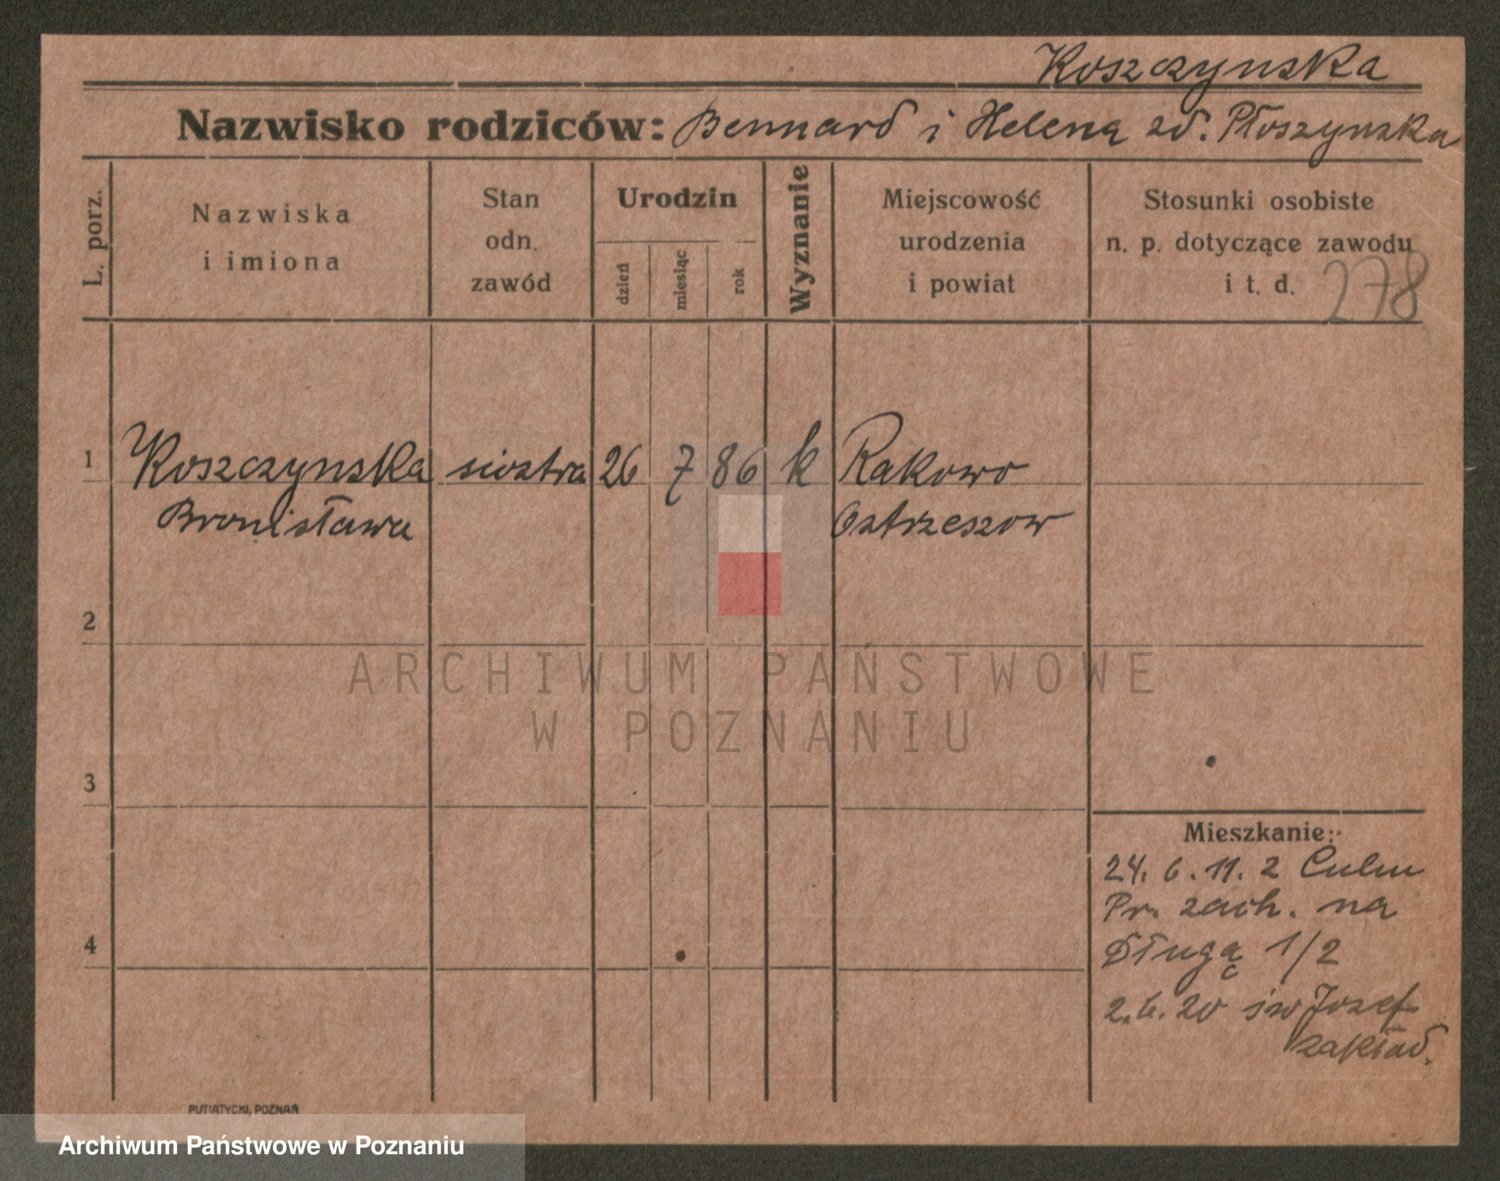 Koszczynska
Nazwisko rodziców: Bennard i Helena zd. Płoszynska
L. porz.
Nazwiska
i imiona
Stan
odn.
zawód
Urodzin
dzień
miesiąc
rok
Wyznanie
Miejscowość
urodzenia
i powiat
Stosunki osobiste
n. p. dotyczące zawodu
i t. d.
278
1 Koszczynska siostra 26 7 86 k Rakowo
Bronisława Ostrzeszow
2
ARCHIWUM PAŃSTWOWE
W POZNANIU
3
Mieszkanie:
24. 6. 11. z Culm
Pr. zach. na
4
Długą 1/2
2.6.20 św Jozef
zakład.
PUTIATYCKI, POZNAŃ
Archiwum Państwowe w Poznaniu